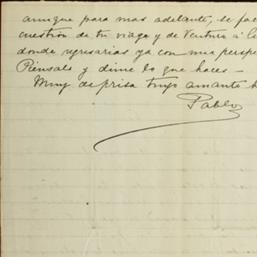 aunque para mas adelante, le fa
cuestion de tu viage y de Ventura á
donde regresarias ya con mia
Piénsalo y dime lo que haces –
Muy de prisa tuyo amante h
Pablo